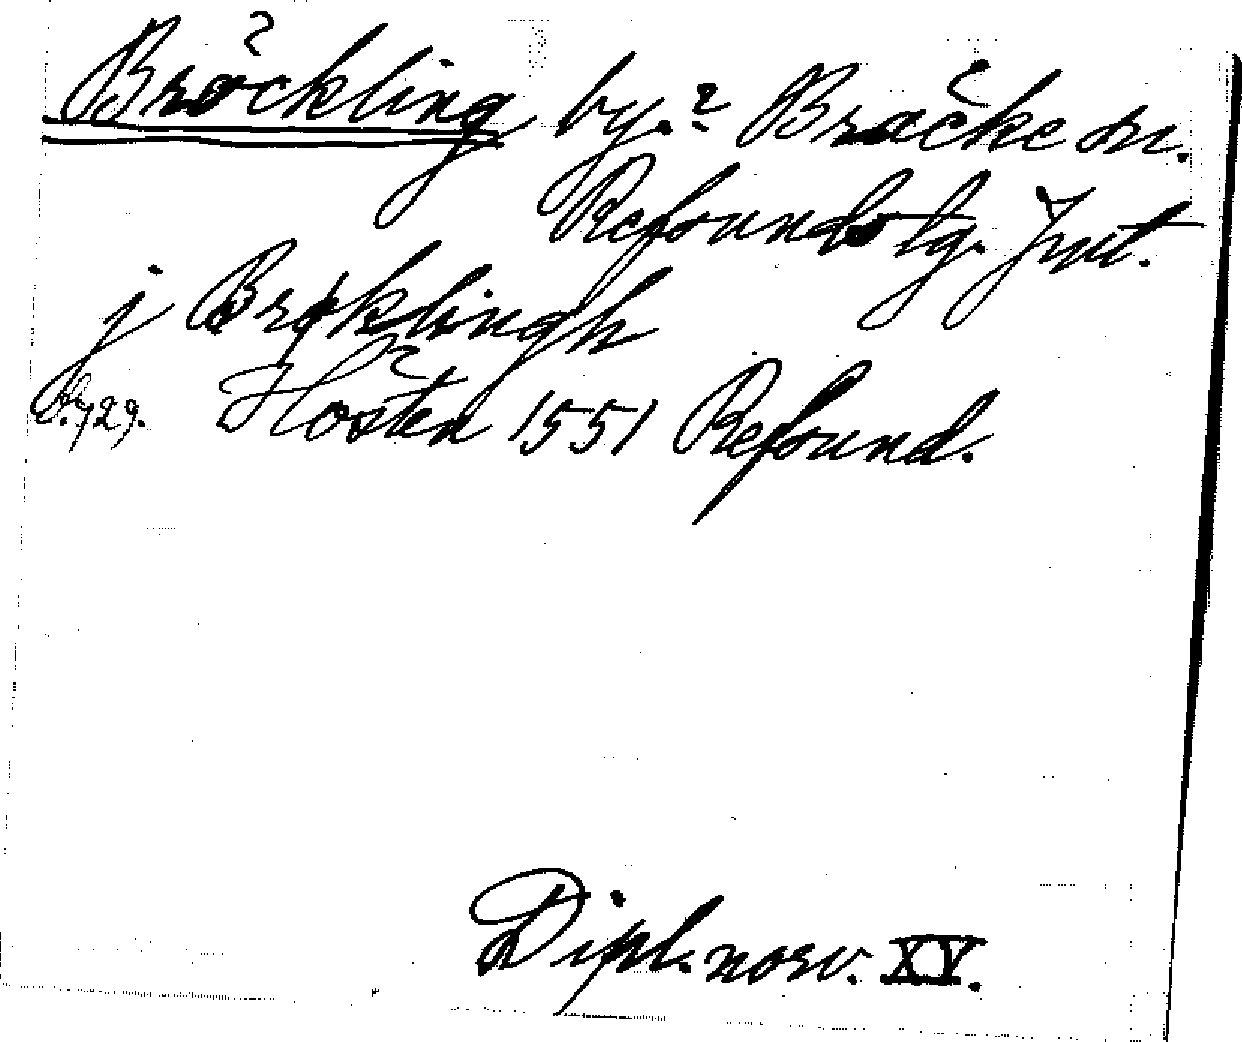 Bröckling by.? Bräcke sn.
Refsunds tg. Jmt.
j Brøklingh
S. 729. Hösten 1551 Refsund.
Dipl. norv. XV.